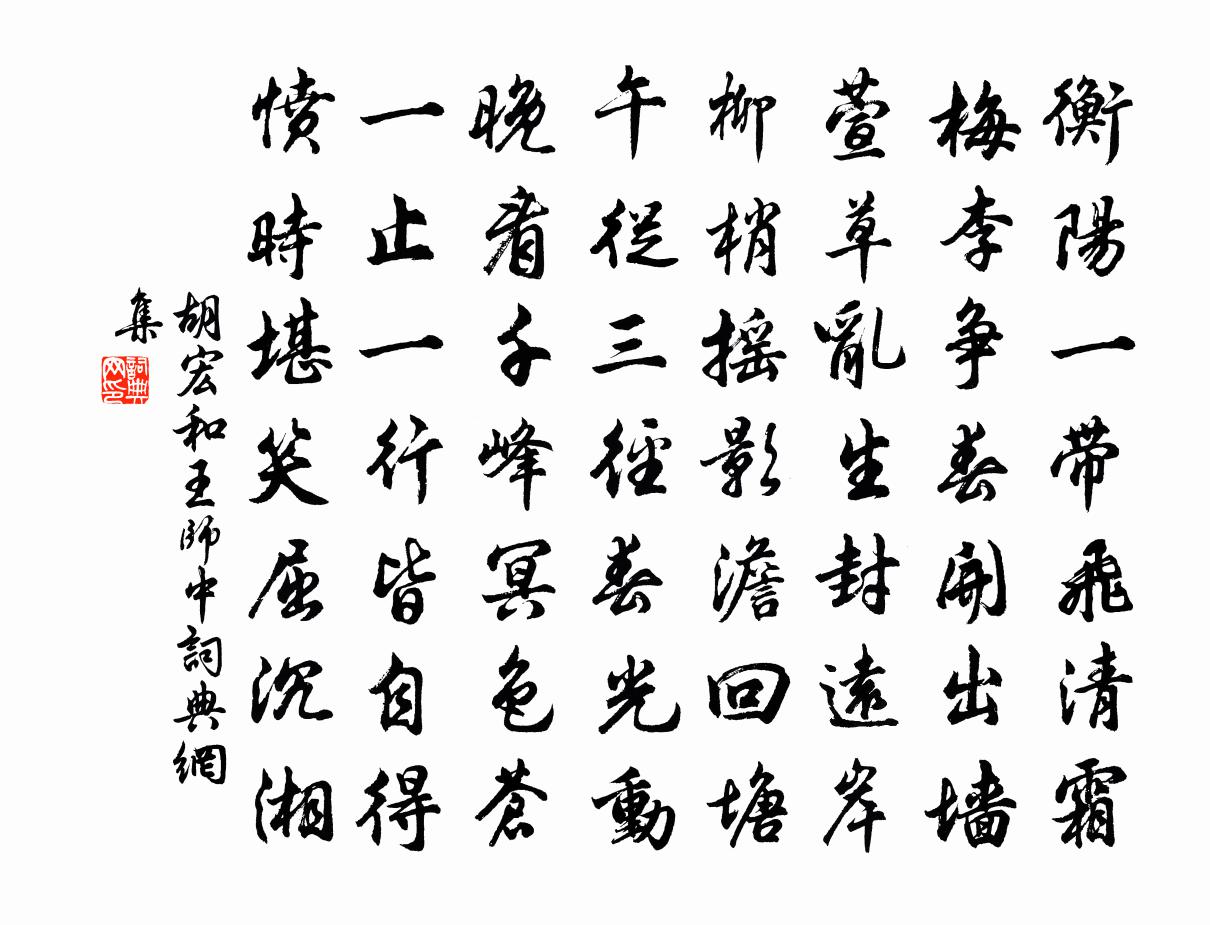 衡陽一帶飛清霜
梅李爭春開出墻
萱草亂生封遠岸
柳梢搖影澹回塘
午從三徑春光動
晚看千峰冥色蒼
一止一行皆自得
憤時堪笑屈沉湘
胡宏和王師中詞典網
集
詞典
网印